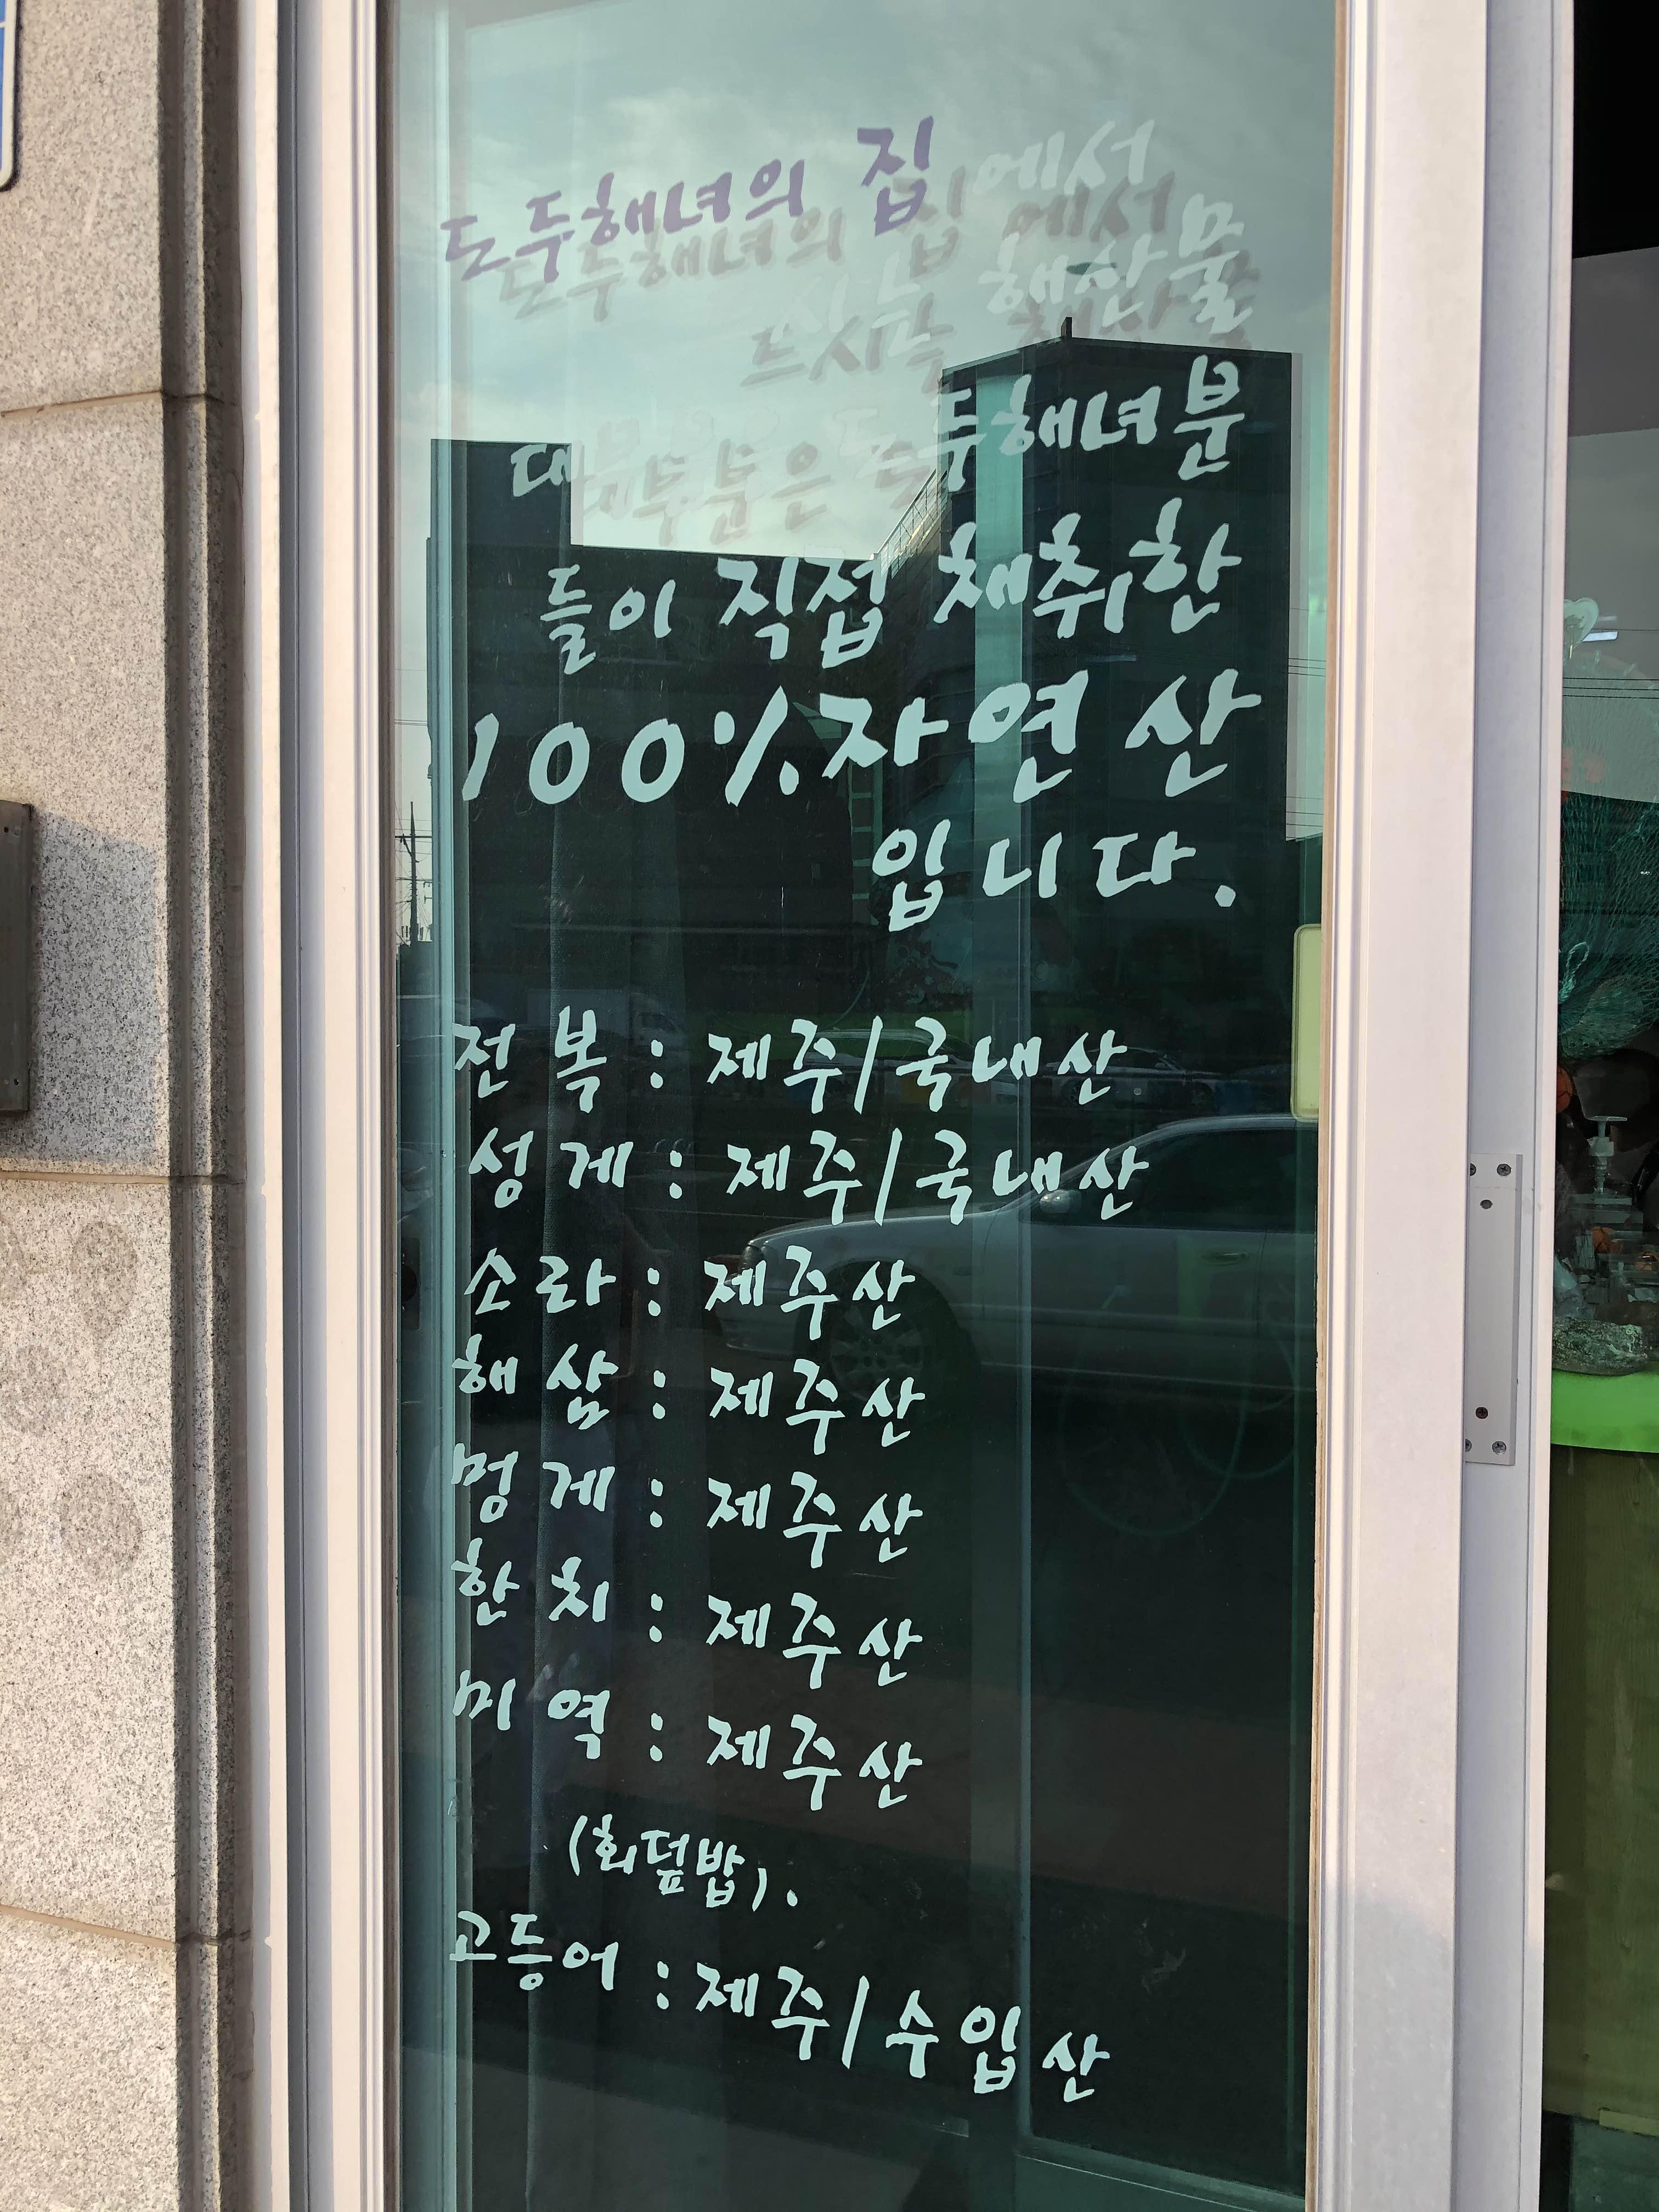 도두해녀의 집에서
드시는 해산물
대부분은 도두해녀분
들이 직접 채취한
100%자연산
입니다.
전복 : 제주/국내산
성게 : 제주/국내산
소라 : 제주산
해삼 : 제주산
멍게 : 제주산
한치 : 제주산
미역 : 제주산
(회덮밥).
고등어 : 제주/수입산